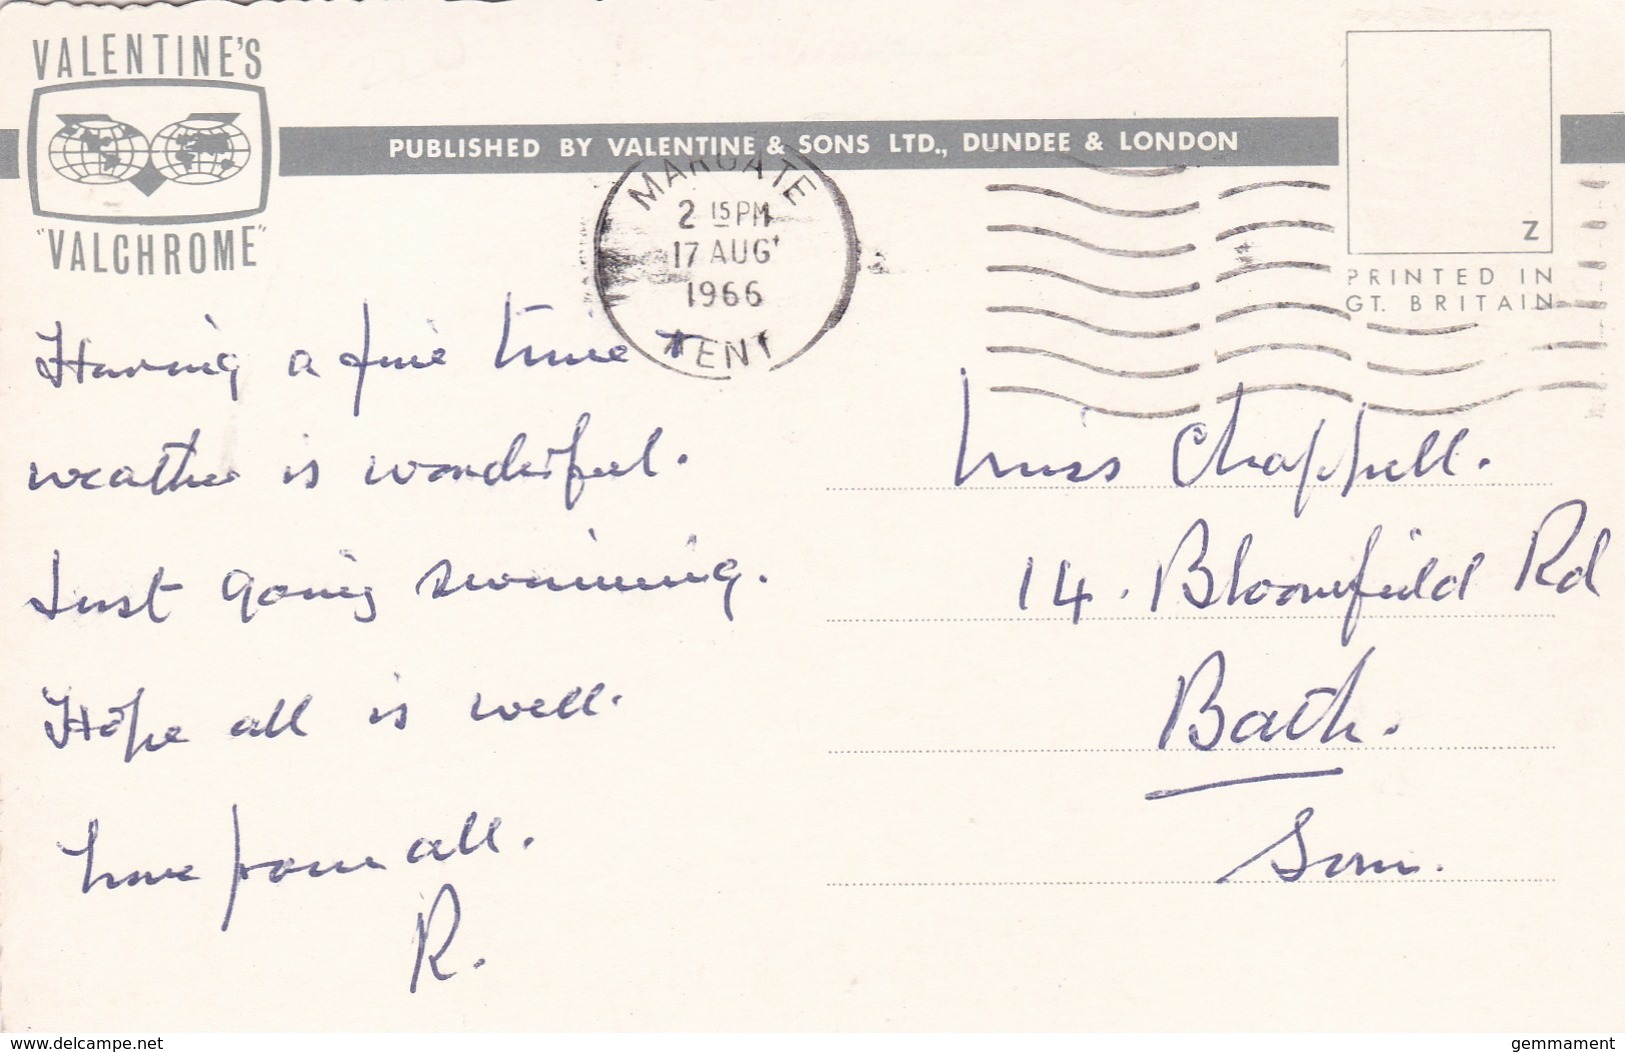 VALENTINE'S
"VALCHROME"
PUBLISHED BY VALENTINE & SONS LTD., DUNDEE & LONDON
MARGATE
2 15 PM
17 AUG
1966
KENT
Z
PRINTED IN
GT. BRITAIN
Having a fine time
weather is wonderful.
Just going swimming.
Hope all is well.
Love from all.
R.
Miss Chappell.
14. Bloomfield Rd
Bath.
Som.
www.delcampe.net
gemmament